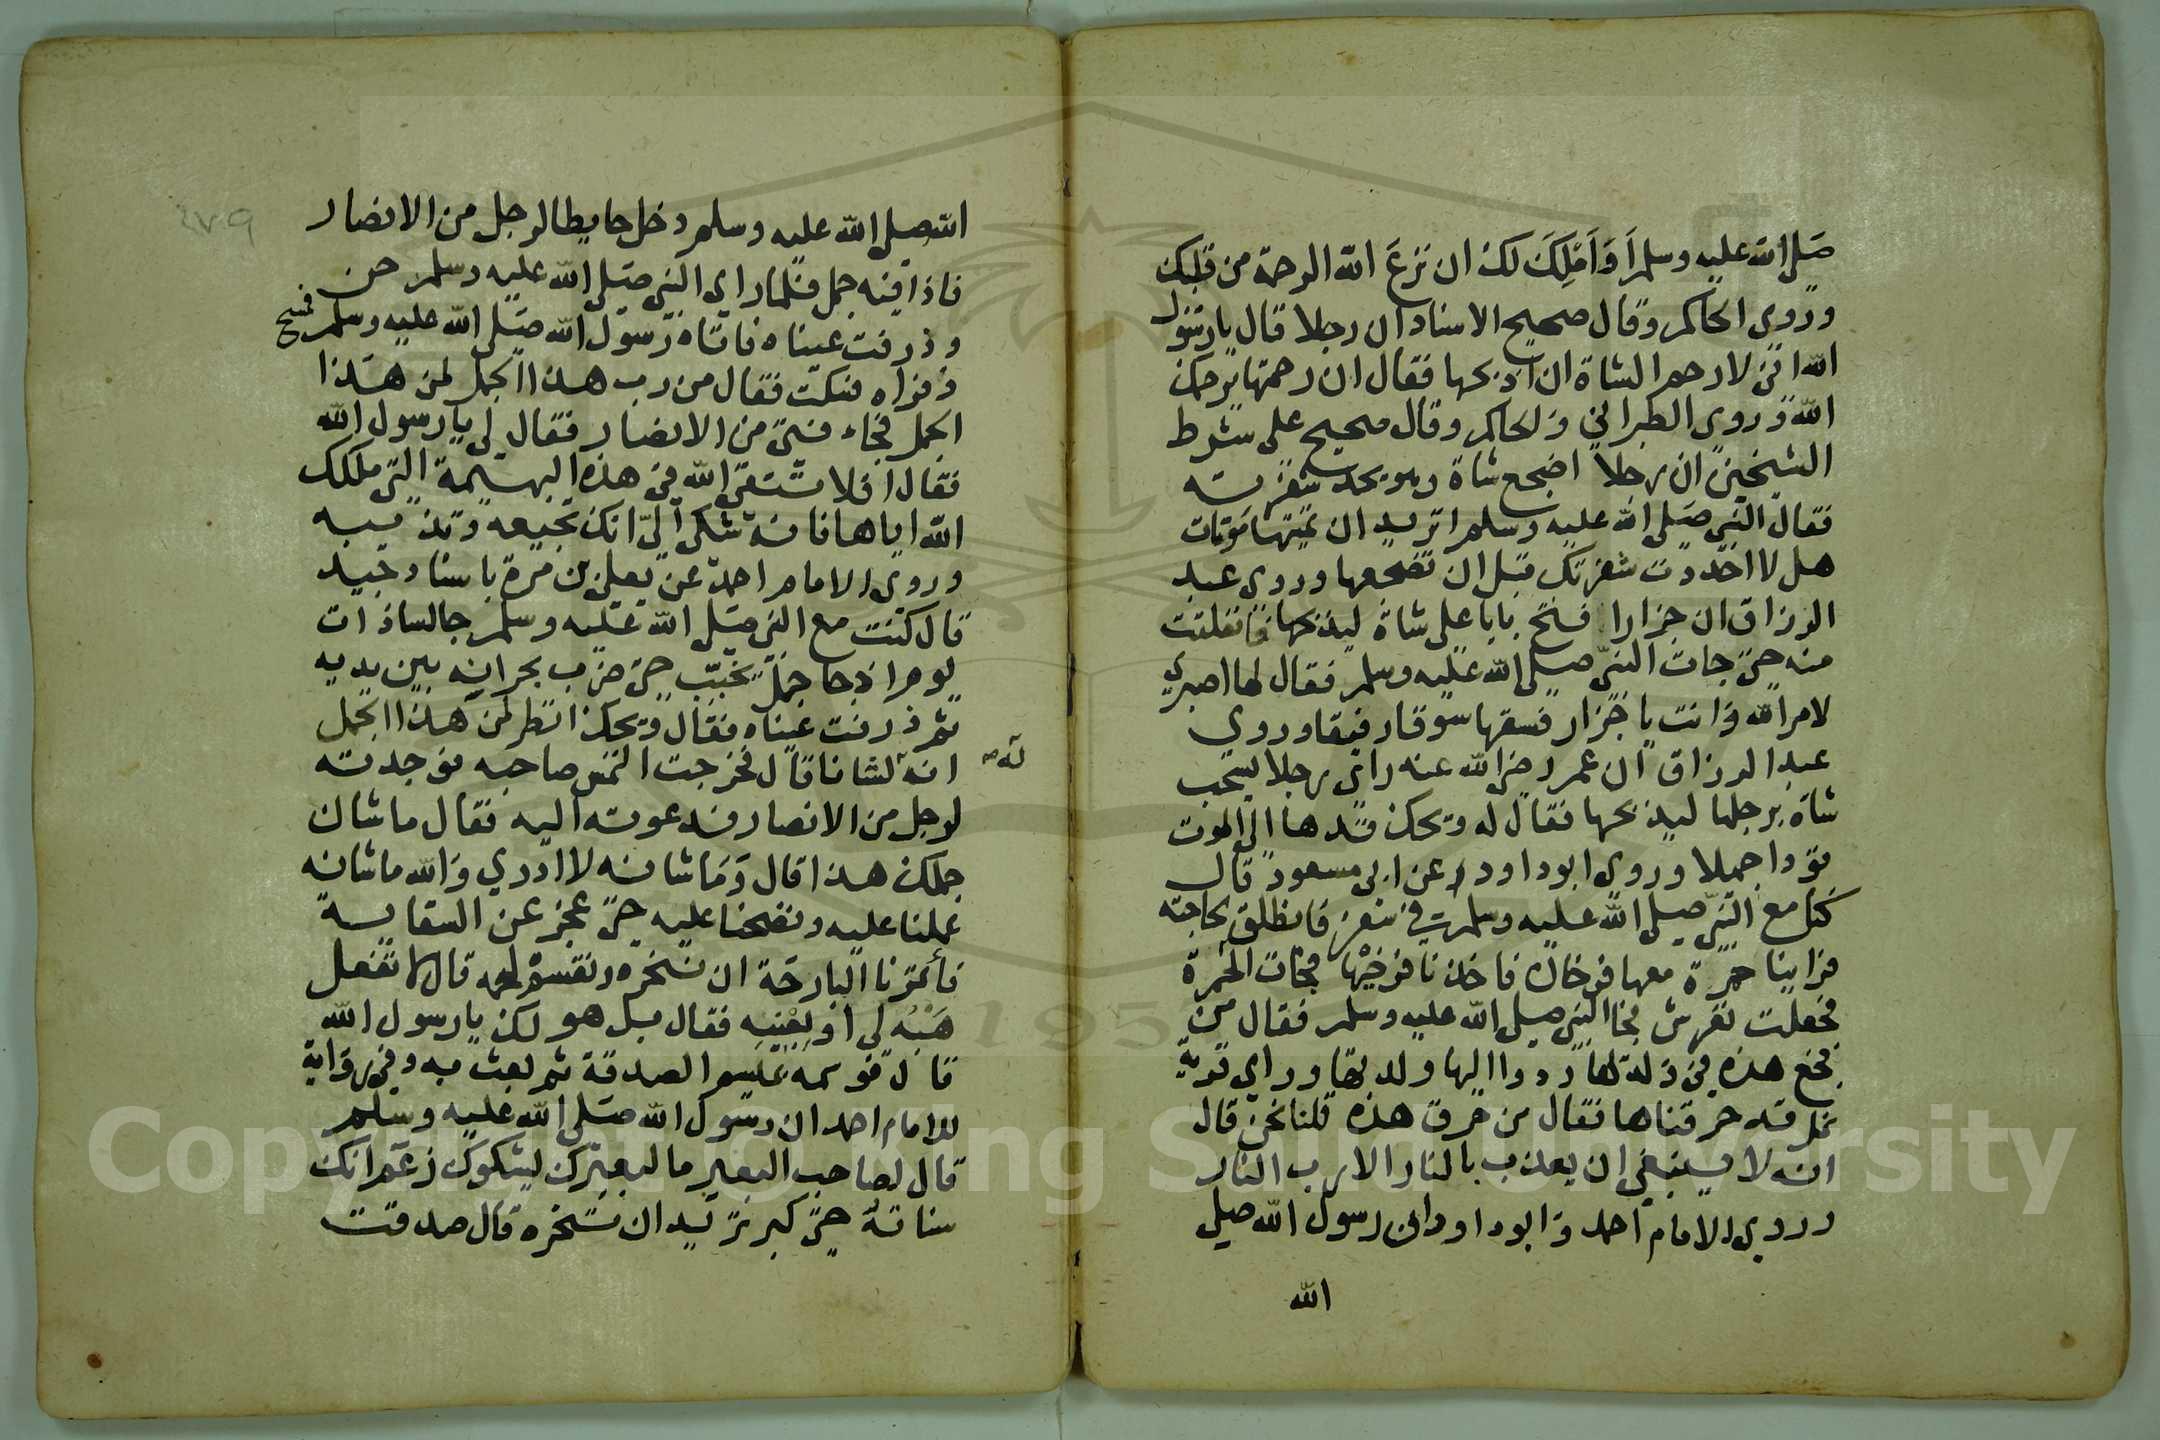 صلى الله عليه وسلم أَوَأَمْلِكَ لك ان نزعَ الله الرحمة من قلبك
وروى الحاكم وقال صحيح الاسناد ان رجلا قال يارسول
الله اني لارحم الشاة ان اذبحها فقال ان رحمتها يرحمك
الله وروى الطبراني والحاكم وقال صحيح على شرط
الشيخين ان رجلا اضجع شاة وهو يحد شفرته
فقال النبي صلى الله عليه وسلم اتريد ان تميتها موتات
هل لا احددت شفرتك قبل ان تضجعها وروى عبد
الرزاق ان جزارا فتح بابا على شاة ليذبحها فانفلتت
منه حتى جات النبي صلى الله عليه وسلم فقال لها اصبري
لامر الله وانت يا جزار فسقها سوقا رفيقا وروى
عبد الرزاق ان عمر رضى الله عنه راى رجلا يسحب
شاة برجلها ليذبحها فقال له ويحك قدها الى الموت
قودا جميلا وروى ابو داود عن ابى مسعود قال
كنا مع النبي صلى الله عليه وسلم في سفر فانطلق لحاجته
فراينا حمرة معها فرخان فاخذنا فرخيها فجات الحمرة
فجعلت تفرش فجا النبي صلى الله عليه وسلم فقال من
فجع هذه في ولدها ردوا اليها ولديها وراى قرية
نمل قد حرقناها فقال من حرق هذه قلنا نحن قال
انه لا ينبغي ان يعذب بالنار الا رب النار
وروى الامام احمد وابو داود ان رسول الله صلى
الله
٤٧٩
الله صلى الله عليه وسلم دخل حايطا لرجل من الانصار
فاذا فيه جمل فلما راى النبي صلى الله عليه وسلم حن
وذرفت عيناه فاتاه رسول الله صلى الله عليه وسلم فمسح
ذفراه فسكت فقال من رب هذا الجمل لمن هذا
الجمل فجاء فتى من الانصار فقال لى يا رسول الله
فقال افلا تتقى الله في هذه البهيمة التى ملكك
الله اياها فانه شكى الىّ انك تجيعه وتذيبه
وروى الامام احمد عن يعلى بن مرة باسناد جيد
قال كنت مع النبي صلى الله عليه وسلم جالسا ذات
يوم اذ جا جمل يخبب حتى ضرب بجرانه بين يديه
ثم ذرفت عيناه فقال ويحك انظر لمن هذا الجمل
ان له لشانا قال فخرجت التمس صاحبه فوجدته
لرجل من الانصار فدعوته اليه فقال ما شان
جملك هذا قال وما شانه لا ادري والله ما شانه
عملنا عليه ونضحنا عليه حتى عجز عن السقاية
فأتمرنا البارحة ان ننحره ونقسم لحمه قال لا تفعل
هَبْه لى او بِعْنِيه فقال بل هو لك يا رسول الله
قال فوسمه بميسم الصدقة ثم بعث به وفي رواية
للامام احمد ان رسول الله صلى الله عليه وسلم
قال لصاحب البعير ما لبعيرك يشكوك زعم انك
سناته حتى كبر تريد ان تنحره قال صدقت